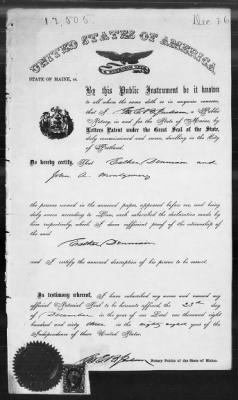 12,505.
Dec. 26
UNITED STATES OF AMERICA.
STATE OF MAINE, ss.
By this Public Instrument be it known
to all whom the same doth or in anywise concern,
that I, Public
Notary, in and for the State of Maine, by
Letters Patent under the Great Seal of the State,
duly commissioned and sworn, dwelling in the City
of Portland.
Do hereby certify, That Esther Denman and
John A. Montgomery
the persons named in the annexed papers, appeared before me, and being
duly sworn according to Law, each subscribed the declaration made by
him respectively, which I deem sufficient proof of the citizenship of
the said
Esther Denman
and I certify the annexed description of his person to be correct.
In testimony whereof, I have subscribed my name and caused my
official Notarial Seal to be hereunto affixed, the 23rd day
of December in the year of our Lord one thousand eight
hundred and sixty three in the eighty eighth year of the
Independence of these United States.
Notary Public of the State of Maine.